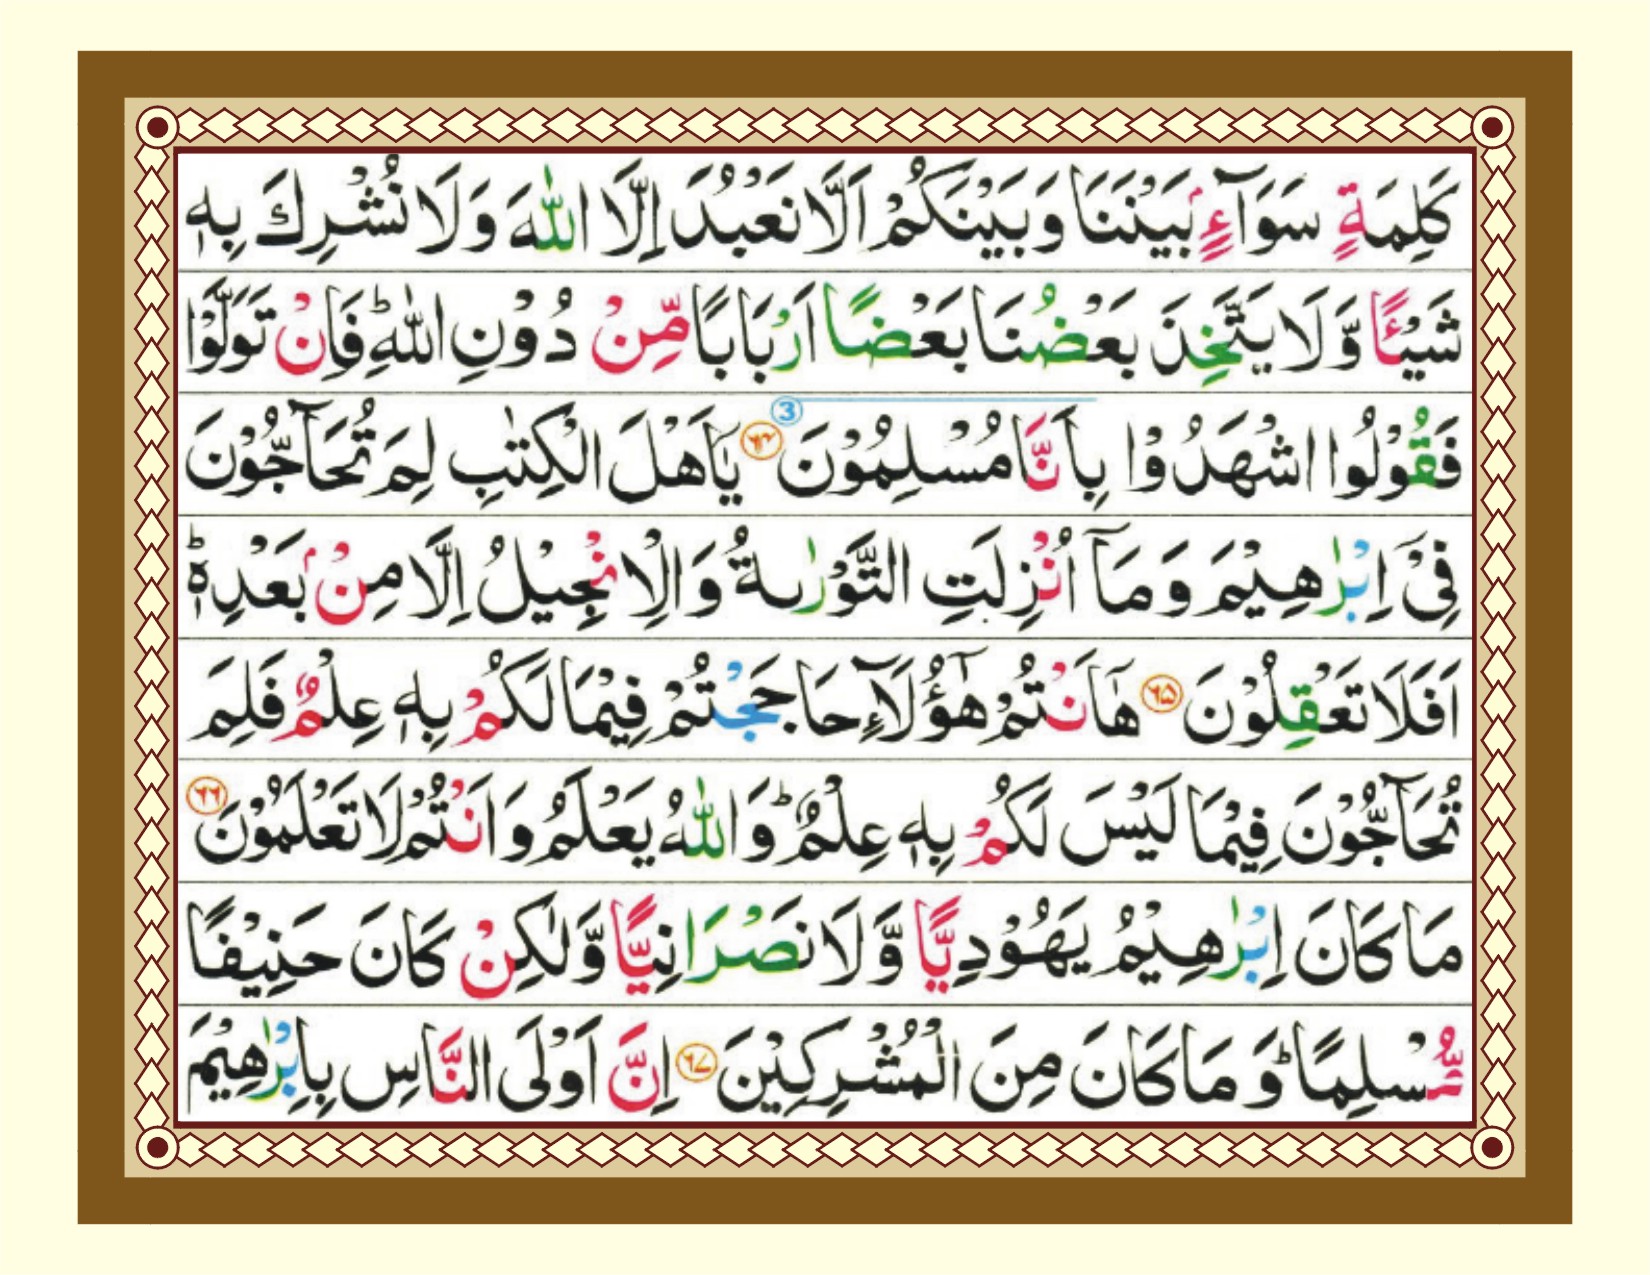 كَلِمَةٍ سَوَآءٍۭ بَيْنَنَا وَبَيْنَكُمْ اَلَّا نَعْبُدَ اِلَّا اللّٰهَ وَلَا نُشْرِكَ بِهٖ
شَيْـًٔا وَّلَا يَتَّخِذَ بَعْضُنَا بَعْضًا اَرْبَابًا مِّنْ دُوْنِ اللّٰهِ ؕ فَاِنْ تَوَلَّوْا
فَقُوْلُوا اشْهَدُوْا بِاَنَّا مُسْلِمُوْنَ ﴿۶۴﴾ 3 يٰۤاَهْلَ الْكِتٰبِ لِمَ تُحَآجُّوْنَ
فِىْۤ اِبْرٰهِيْمَ وَمَاۤ اُنْزِلَتِ التَّوْرٰىةُ وَالْاِنْجِيْلُ اِلَّا مِنْۢ بَعْدِهٖ ؕ
اَفَلَا تَعْقِلُوْنَ ﴿۶۵﴾ هٰۤاَنْتُمْ هٰٓؤُلَآءِ حَاجَجْتُمْ فِيْمَا لَكُمْ بِهٖ عِلْمٌ فَلِمَ
تُحَآجُّوْنَ فِيْمَا لَيْسَ لَكُمْ بِهٖ عِلْمٌ ؕ وَاللّٰهُ يَعْلَمُ وَاَنْتُمْ لَا تَعْلَمُوْنَ ﴿۶۶﴾
مَا كَانَ اِبْرٰهِيْمُ يَهُوْدِيًّا وَّلَا نَصْرَانِيًّا وَّلٰكِنْ كَانَ حَنِيْفًا
مُّسْلِمًا ؕ وَمَا كَانَ مِنَ الْمُشْرِكِيْنَ ﴿۶۷﴾ اِنَّ اَوْلَى النَّاسِ بِاِبْرٰهِيْمَ